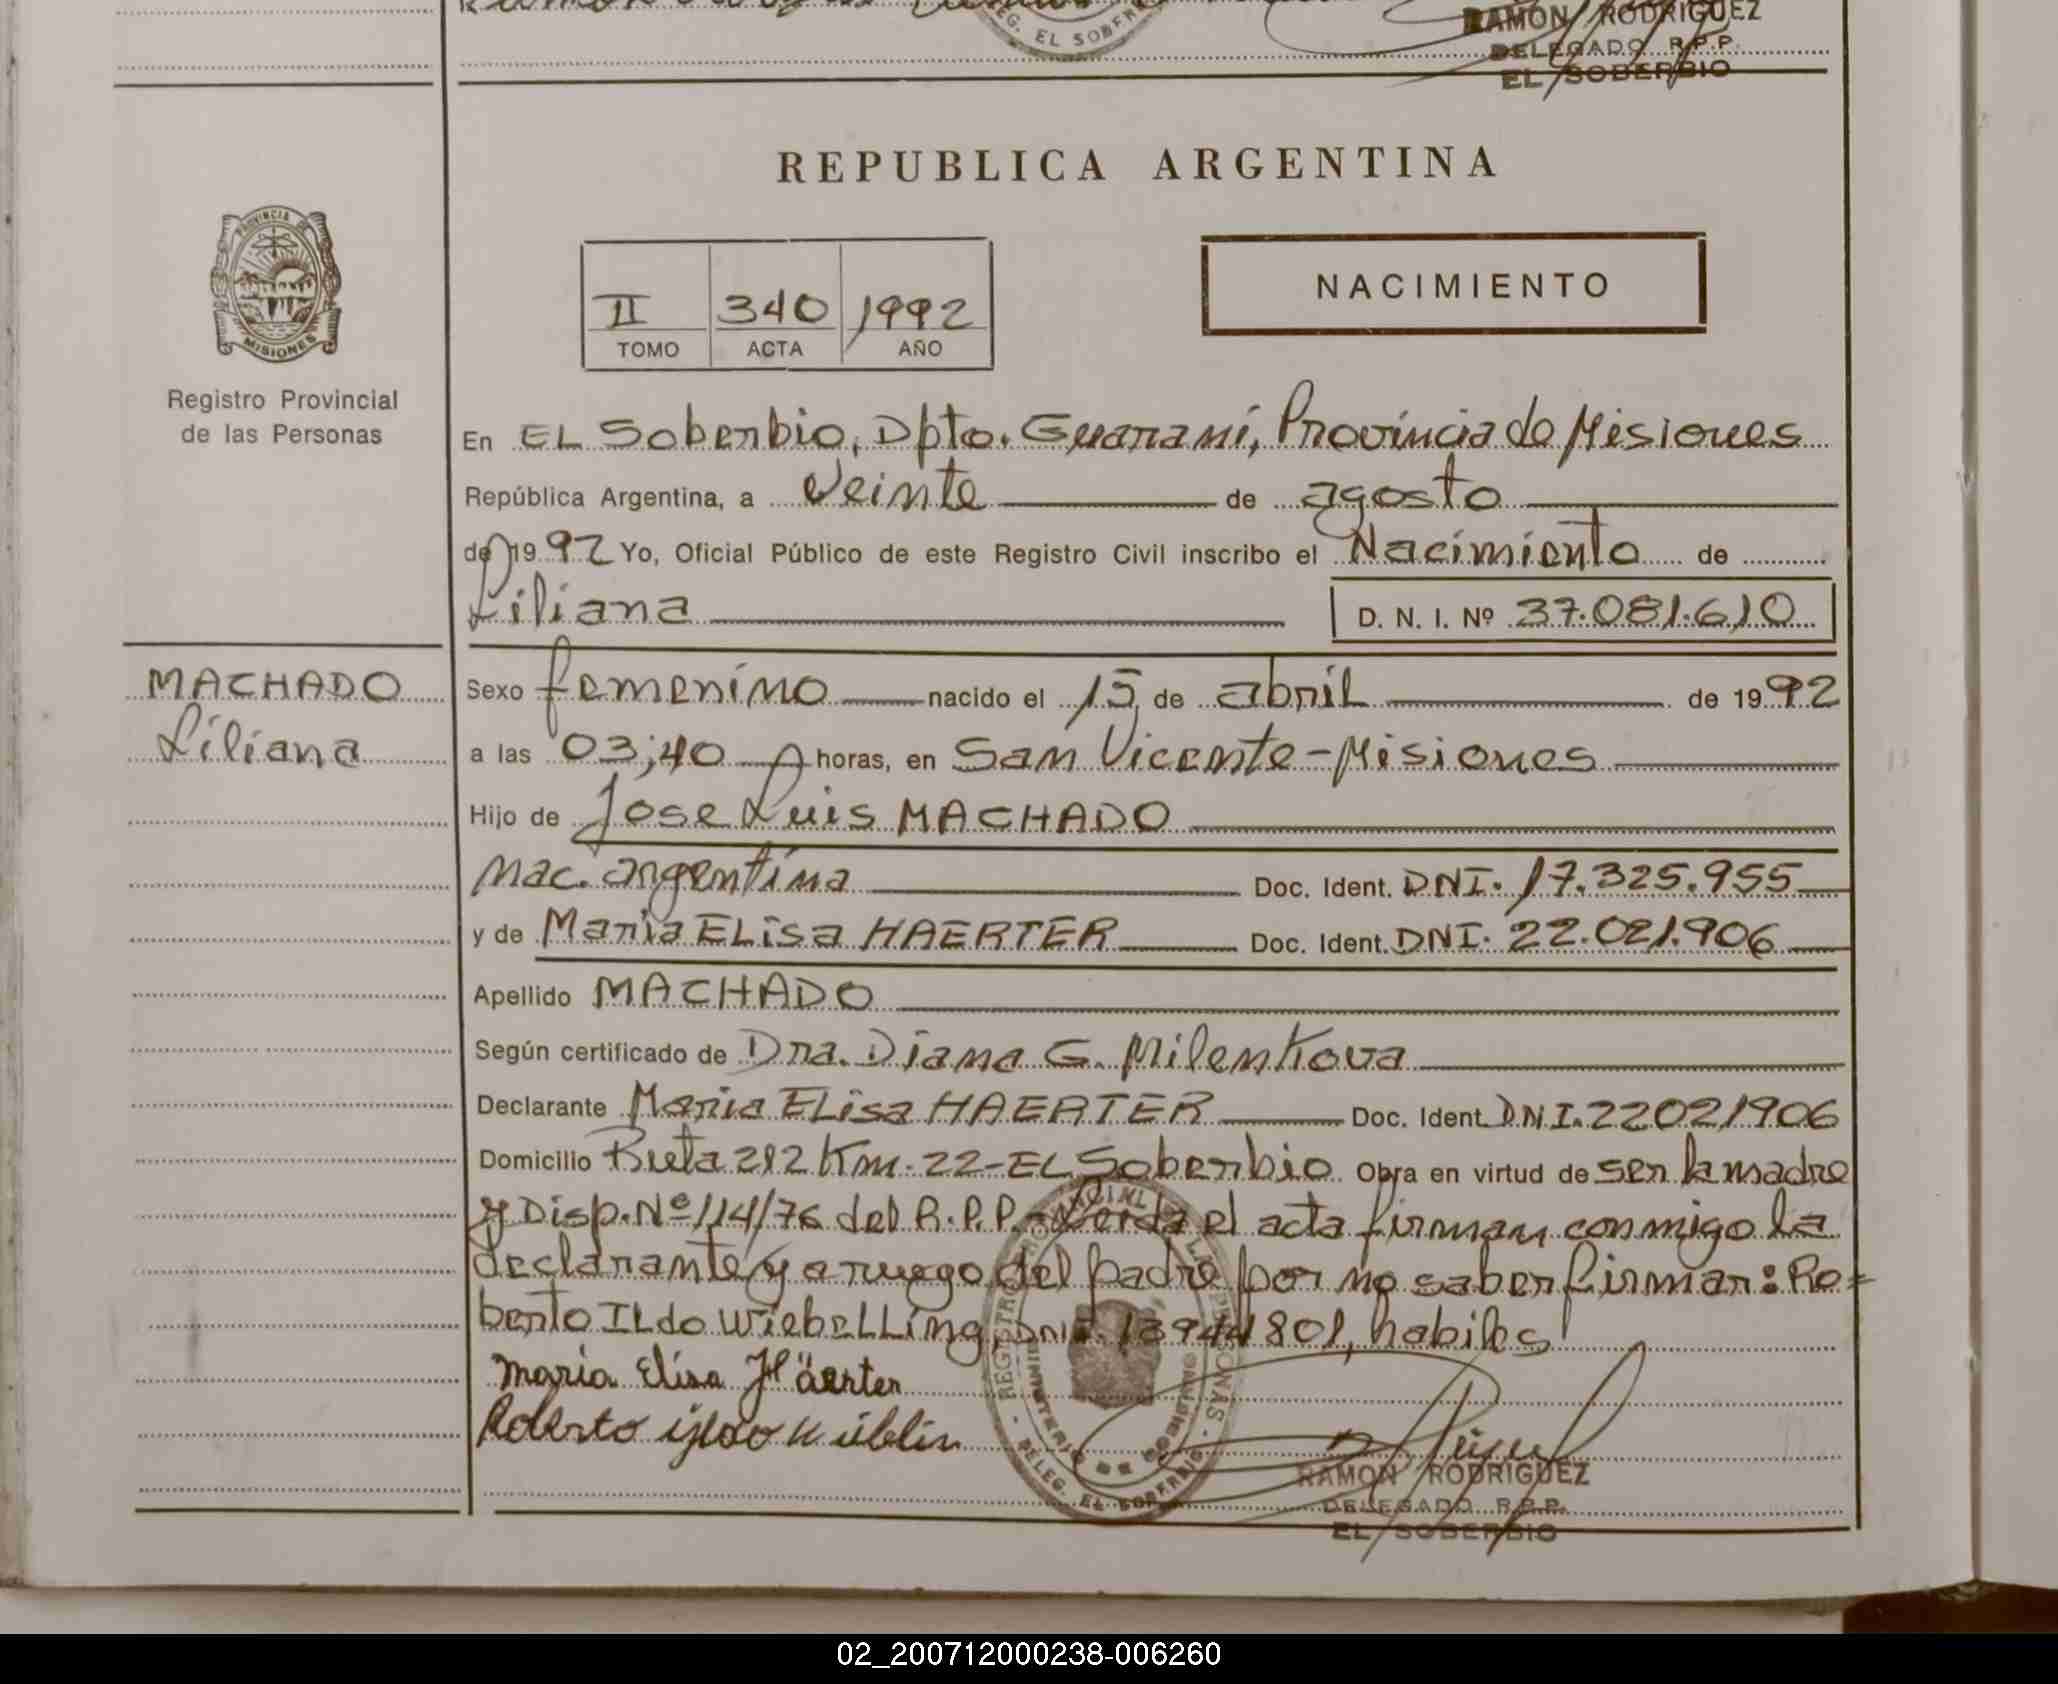 RAMON RODRIGUEZ
DELEGADO R.P.P.
EL SOBERBIO
REG. EL SOBER
REPUBLICA ARGENTINA
PROVINCIA DE
MISIONES
Registro Provincial
de las Personas
II 340 1992
TOMO ACTA AÑO
NACIMIENTO
En EL Soberbio, Dpto. Guarani, Provincia de Misiones
República Argentina, a Veinte de agosto
de 1992 Yo, Oficial Público de este Registro Civil inscribo el Nacimiento de
Liliana D. N. I. Nº 37.081.610
MACHADO
Liliana
Sexo femenino nacido el 15 de abril de 1992
a las 03;40 horas, en San Vicente-Misiones
Hijo de Jose Luis MACHADO
Nac. argentina Doc. Ident. DNI. 17.325.955
y de Maria ELisa HAERTER Doc. Ident. DNI. 22.021.906
Apellido MACHADO
Según certificado de Dra. Diana G. Milenkova
Declarante Maria ELisa HAERTER Doc. Ident. DNI. 22021906
Domicilio Ruta 212 Km. 22-EL Soberbio Obra en virtud de ser la madre
y Disp. Nº 114/76 del R.P.P.- Leida el acta firman conmigo la
declarante y a ruego del padre por no saber firmar: Ro=
berto ILdo WiebeLLing, DNI. 13944801, habiles
Maria Elisa Häerter
Roberto
REGISTRO PROVINCIAL DE LAS PERSONAS
MINISTERIO DE GOBIERNO
DELEG. EL SOBERBIO
RAMON RODRIGUEZ
DELEGADO R.P.P.
EL SOBERBIO
02_200712000238-006260